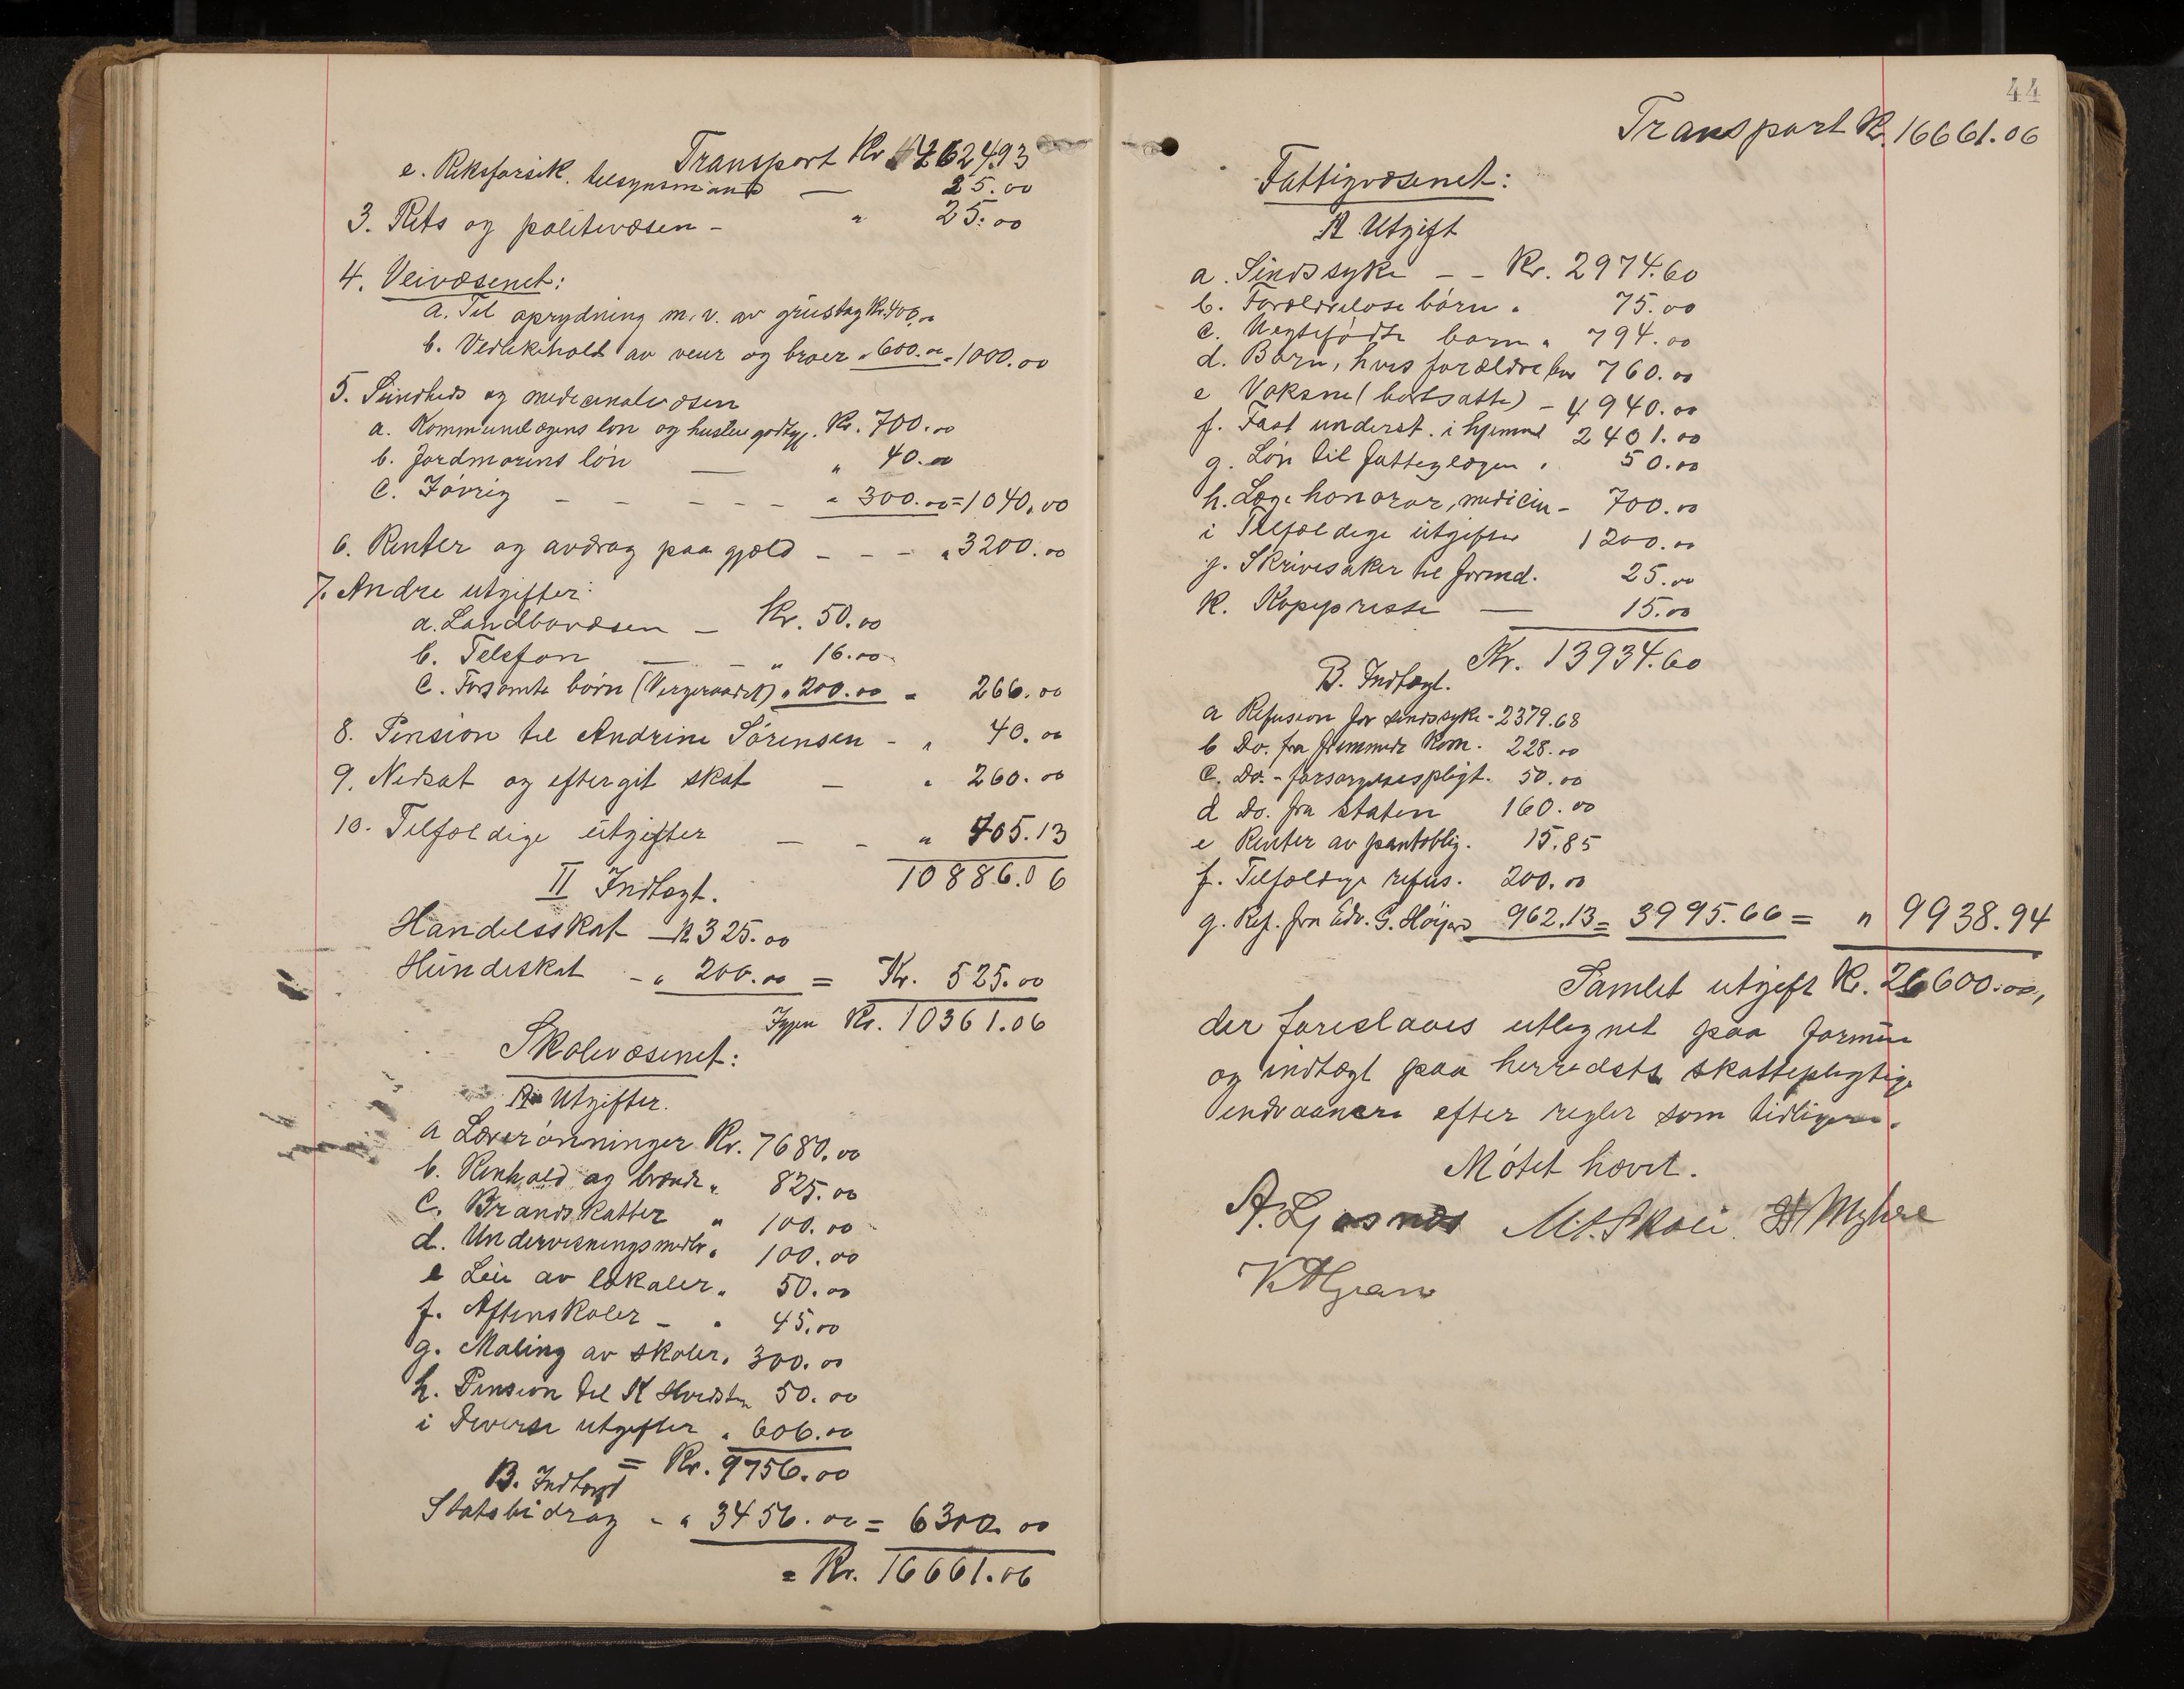 Transport Kr 4624.93
e. Riksforsik. tilsynsmand — 25.00
3. Rets og politivæsen - " 25.00
4. Veivæsenet:
a. Til oprydning m.v. av grustag Kr. 400.00
b. Vedlikehold av veier og broer " 600.00 = 1000.00
5. Sundheds og medicinalvæsen
a. Kommunelægens løn og husleiegodtgj. Kr. 700.00
b. Jordmorens løn — " 40.00
c. Iøvrig - - - - - " 300.00 = 1040.00
6. Renter og avdrag paa gjæld - - - " 3200.00
7. Andre utgifter:
a. Landbovæsen - Kr. 50.00
b. Telefon — - " 16.00
c. Forsømte børn (Vergeraadet) " 200.00 = 266.00
8. Pension til Andrine Sørensen - " 40.00
9. Nedsat og eftergit skat — " 260.00
10. Tilfældige utgifter — - " 405.13
10886.06
II Indtægt.
Handelsskat - Kr 325.00
Hundeskat - " 200.00 = Kr. 525.00
Igjen Kr. 10361.06
Skolevæsenet:
A. Utgifter.
a Lærerlønninger Kr. 7680.00
b. Renhold og brænde " 825.00
c. Brandskatter " 100.00
d. Undervisningsmidler " 100.00
e Leie av lokaler " 50.00
f. Aftenskoler - " 45.00
g. Maling av skoler " 300.00
h. Pension til K Hvidsten 50.00
i Diverse utgifter " 606.00
= Kr. 9756.00
B. Indtægt
Statsbidrag - " 3456.00 = 6300.00
= Kr. 16661.06
44
Transport Kr. 16661.06
Fattigvæsenet:
A Utgift
a. Sindssyke - - Kr. 2974.60
b. Forældreløse børn " 75.00
c. Uegtefødte børn " 794.00
d. Børn, hvis forældre lev 760.00
e Voksne (bortsatte) - 4940.00
f. Fast underst. i hjemmet 2401.00
g. Løn til fattiglægen " 50.00
h. Lægehonorar, medicin - 700.00
i Tilfældige utgifter 1200.00
j. Skrivesaker til formd. 25.00
k. Kopipresse — 15.00
Kr. 13934.60
B. Indtægt.
a Refusion for sindssyke - 2379.68
b Do. fra fremmede Kom. 228.00
c. Do. - forsørgelsespligt. 50.00
d Do. fra staten 160.00
e Renter av pantoblig. 15.85
f. Tilfældige refus. 200.00
g. Ref. fra Edv. G. 962.13 = 3995.66 = " 9938.94
Samlet utgift Kr. 26600.00,
der foreslaaes utlignet paa formue
og indtægt paa herredets skattepligtige
indvaanere efter regler som tidligere.
Møtet hævet.
A. Ljosnæs M. Skoli H Myhre